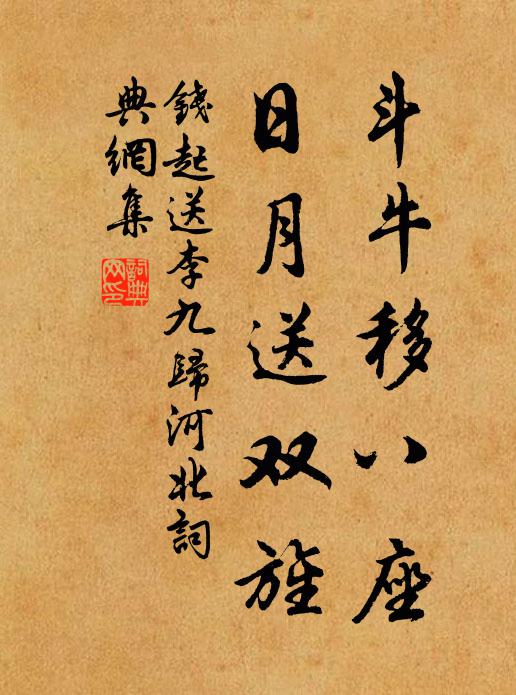 斗牛移八座
日月送双旌
錢起送李九歸河北詞
典網集
詞典
网印